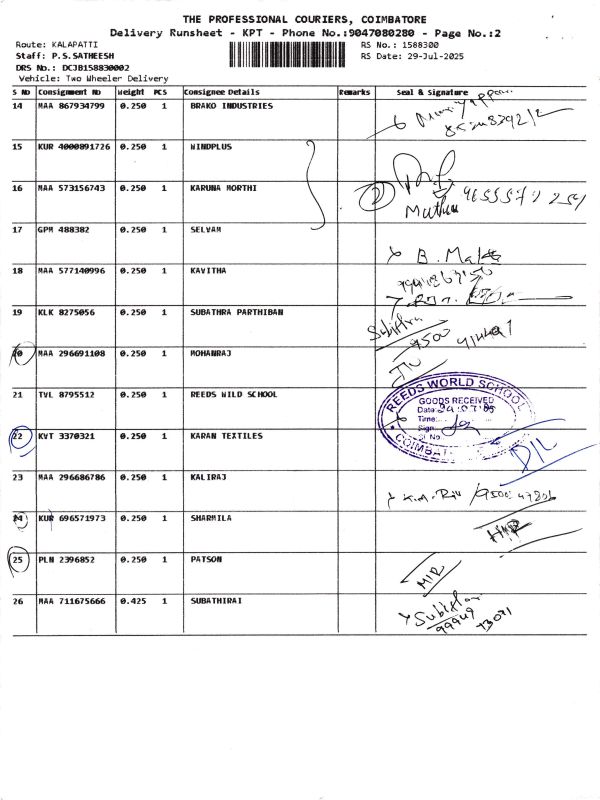 THE PROFESSIONAL COURIERS, COIMBATORE
Delivery Runsheet - KPT - Phone No.:9047080280 - Page No.:2
Route: KALAPATTI RS No.: 1588300
Staff: P.S.SATHEESH RS Date: 29-Jul-2025
DRS No.: DCJB158830002
Vehicle: Two Wheeler Delivery
S No Consignment No Weight PCS Consignee Details Remarks Seal & Signature
14 MAA 867934799 0.250 1 BRAKO INDUSTRIES
15 KUR 4000891726 0.250 1 WINDPLUS
16 MAA 573156743 0.250 1 KARUNA MORTHI 2 Muthu
17 GPM 488382 0.250 1 SELVAM B. Mala
18 MAA 577140996 0.250 1 KAVITHA
19 KLK 8275056 0.250 1 SUBATHRA PARTHIBAN Subithra 9500
20 MAA 296691108 0.250 1 MOHANRAJ
21 TVL 8795512 0.250 1 REEDS WILD SCHOOL
REEDS WORLD SCHOOL
GOODS RECEIVED
Date:
Time:
Sign:
Sl No.
COIMBAT
22 KVT 3370321 0.250 1 KARAN TEXTILES D/L
23 MAA 296686786 0.250 1 KALIRAJ
24 KUR 696571973 0.250 1 SHARMILA
25 PLN 2396852 0.250 1 PATSON MIR
26 MAA 711675666 0.425 1 SUBATHIRAI
99949